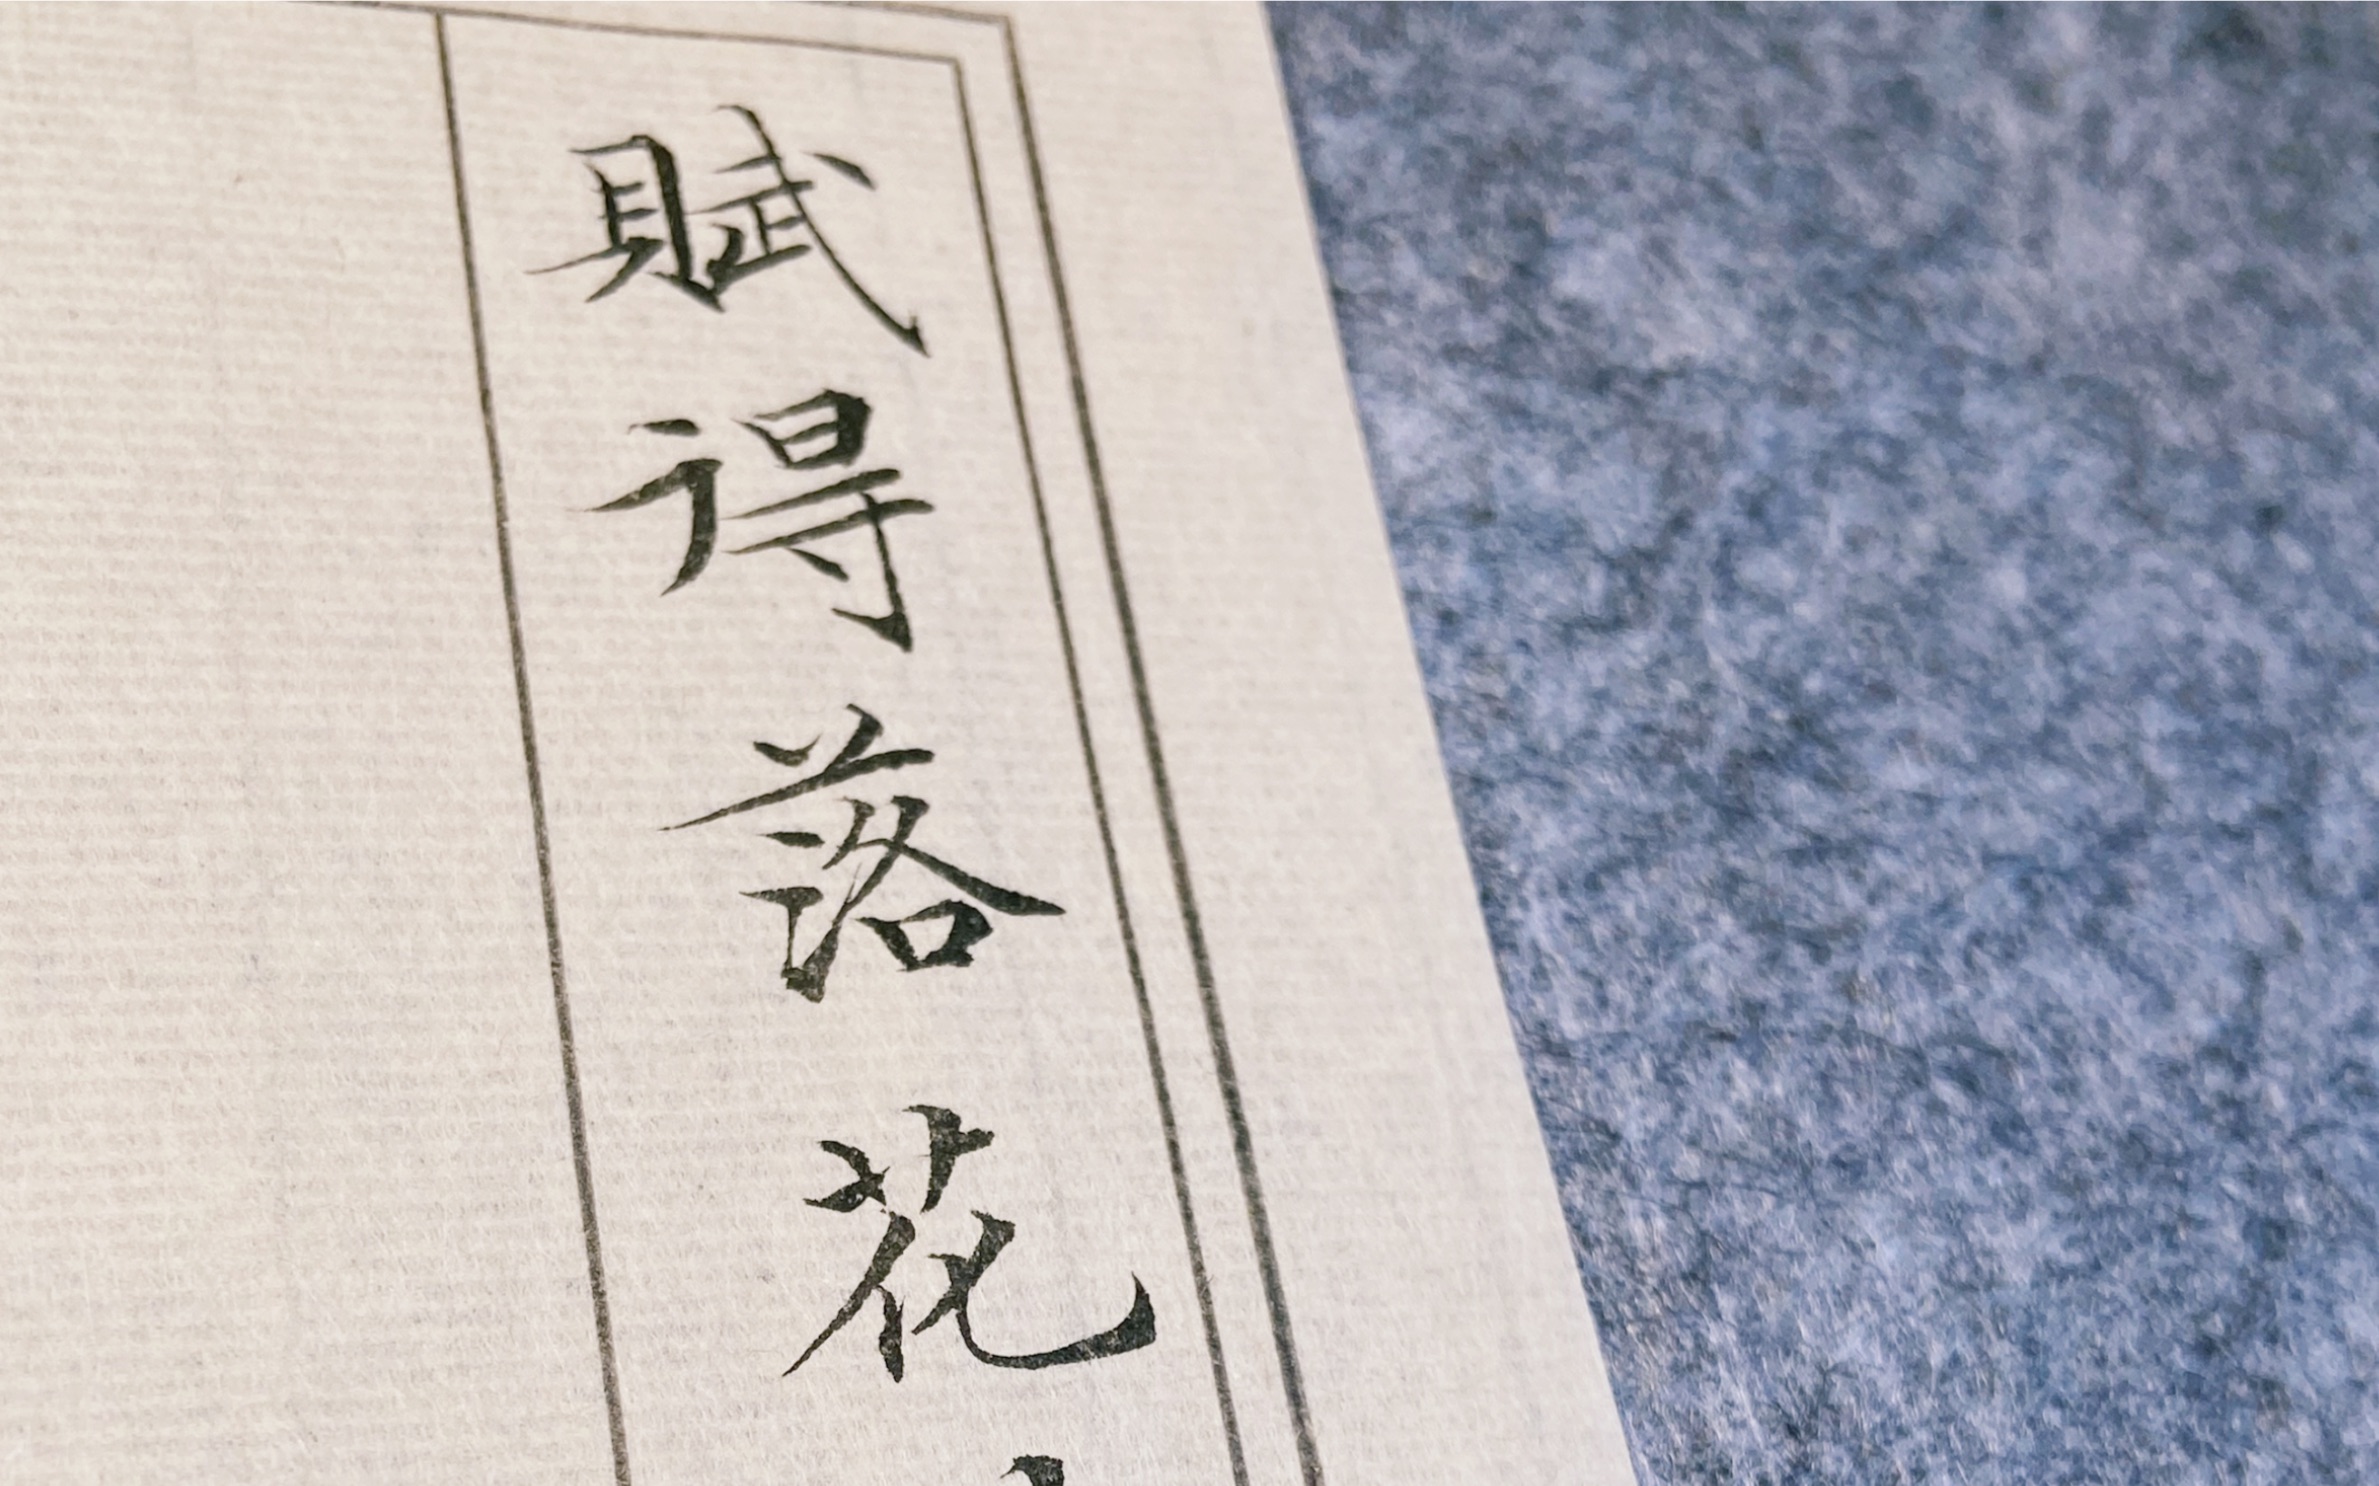 賦得落花